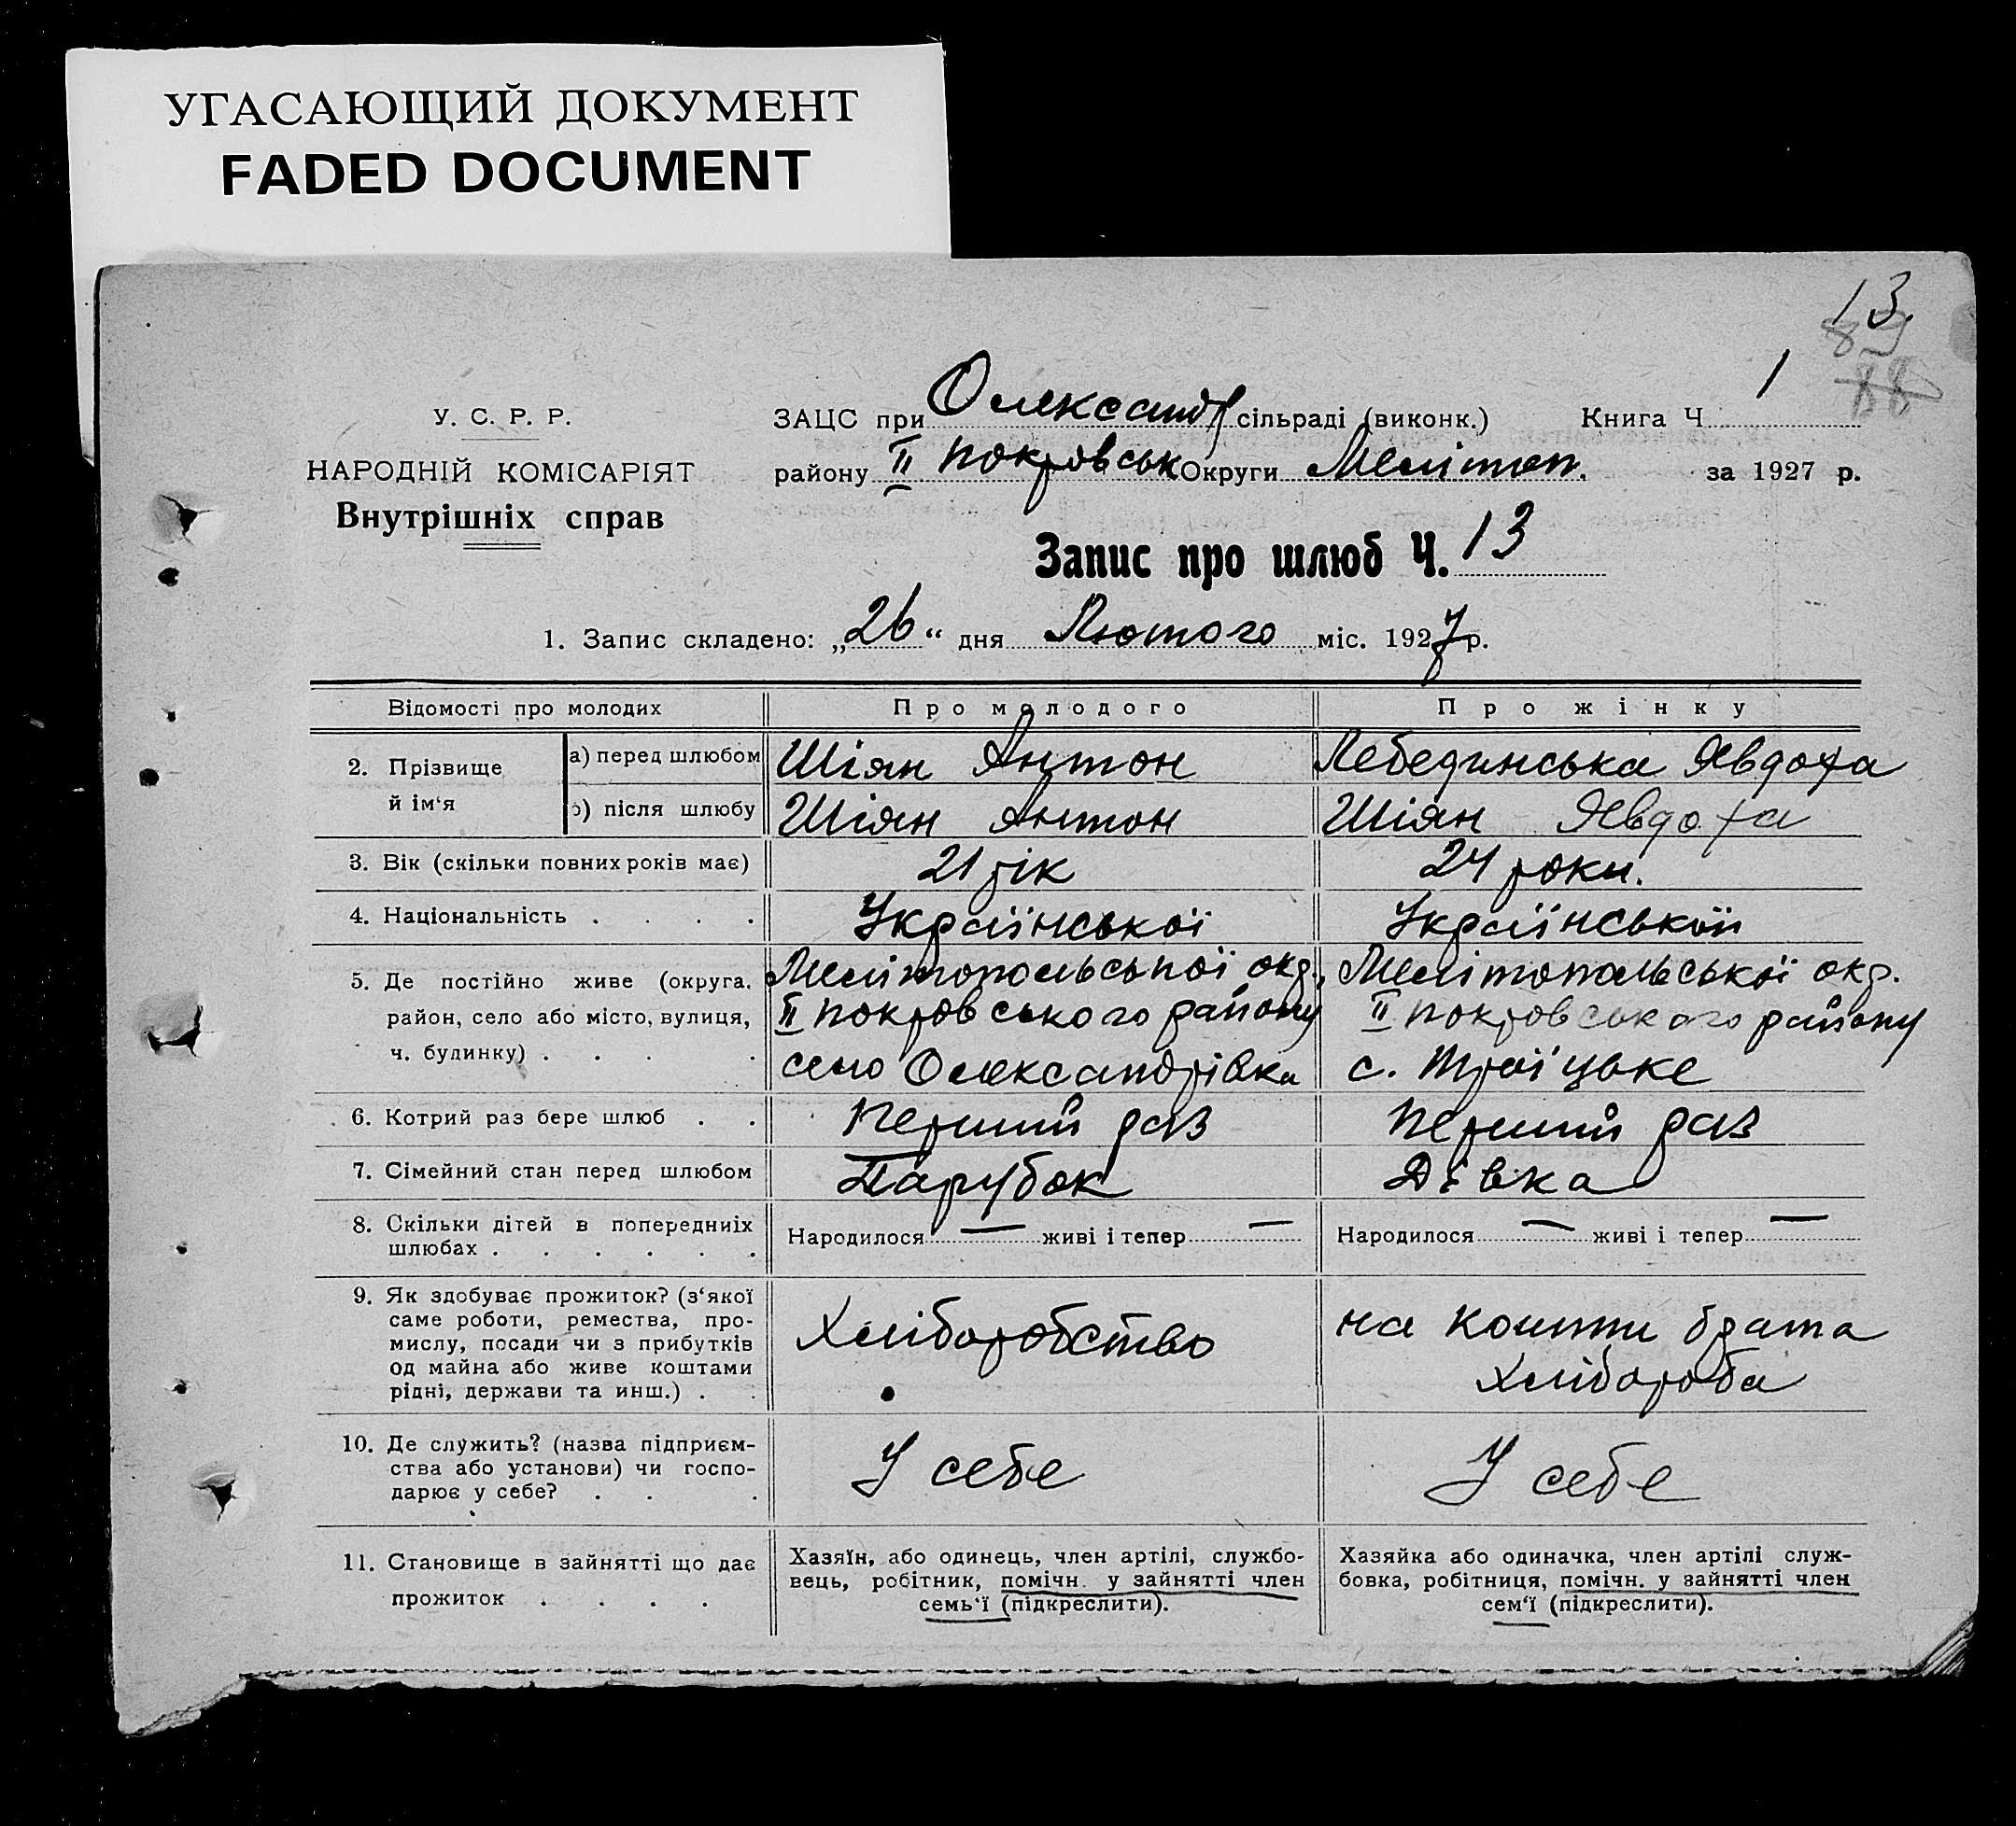 УГАСАЮЩИЙ ДОКУМЕНТ
FADED DOCUMENT
13.
89
88
У. С. Р. Р.
НАРОДНІЙ КОМІСАРІЯТ
Внутрішніх справ
ЗАЦС при Олександр сільраді (виконк.) Книга Ч 1
району II Покровськ Округи Мелітоп. за 1927 р.
Запис про шлюб Ч. 13
1. Запис складено: „26“ дня Лютого міс. 1927 р.
Відомості про молодих Про молодого Про жінку
2. Прізвище й ім‘я
а) перед шлюбом Шіян Антон Лебединська Явдоха
б) після шлюбу Шіян Антон Шіян Явдоха
3. Вік (скільки повних років має) 21 рік 24 роки.
4. Національність . . . . Української Української
5. Де постійно живе (округа, район, село або місто, вулиця, ч. будинку) . . . .
Мелітопольської окр., Мелітопольської окр.
II Покровського району II Покровського району
село Олександрівка с. Троїцьке
6. Котрий раз бере шлюб . . Перший раз Перший раз
7. Сімейний стан перед шлюбом Парубок Дівка
8. Скільки дітей в попередниіх шлюбах . . . . . .
Народилося — живі і тепер — Народилося — живі і тепер —
9. Як здобуває прожиток? (з‘якої
саме роботи, ремества, про-
мислу, посади чи з прибутків
од майна або живе коштами
рідні, держави та инш.) . .
Хліборобство на кошти брата
Хлібороба
10. Де служить? (назва підприєм-
ства або установи) чи госпо-
дарює у себе? . . .
У себе У себе
11. Становище в зайнятті що дає
прожиток . . . .
Хазяїн, або одинець, член артілі, службо-
вець, робітник, помічн. у зайнятті член
семь‘ї (підкреслити).
Хазяйка або одиначка, член артілі служ-
бовка, робітниця, помічн. у зайнятті член
сем‘ї (підкреслити).